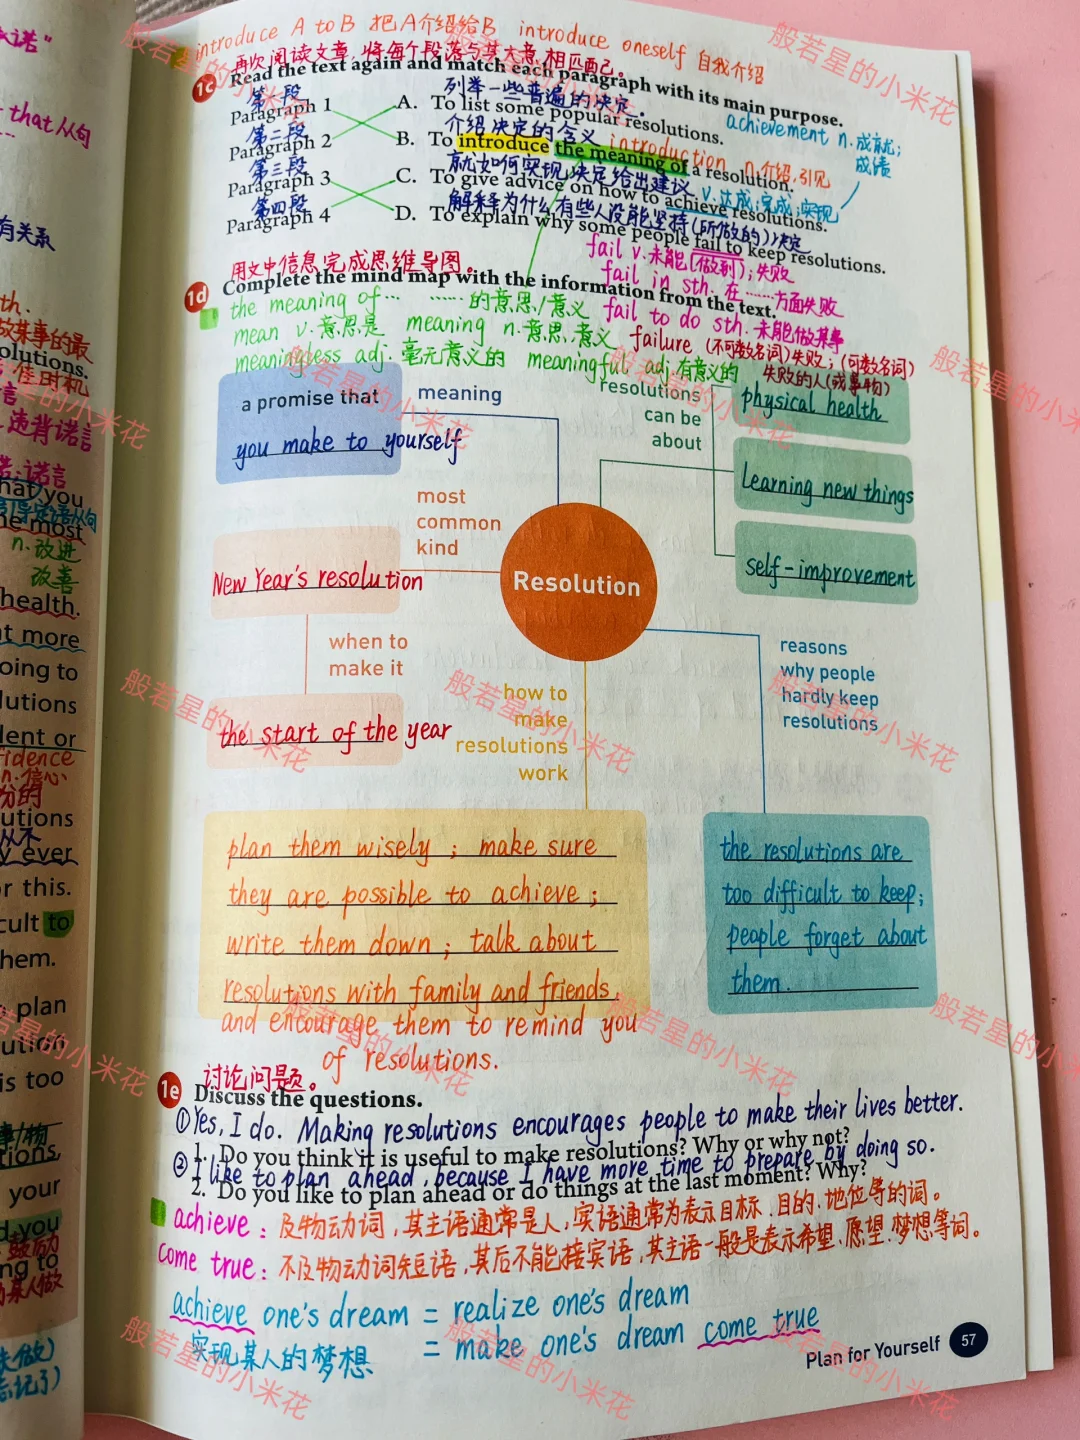 introduce A to B 把A介绍给B introduce oneself 自我介绍
再次阅读文章，将每个段落与其大意相匹配。
1c Read the text again and match each paragraph with its main purpose.
第一段 列举一些普遍的决定.
Paragraph 1 A. To list some popular resolutions.
achievement n.成就;
成绩
第二段 介绍决定的含义 introduction n.介绍.引见
Paragraph 2 B. To introduce the meaning of a resolution.
第三段 就如何实现决定给出建议 v.达成;完成;实现
Paragraph 3 C. To give advice on how to achieve resolutions.
第四段 解释为什么有些人没能坚持(所做的)决定
Paragraph 4 D. To explain why some people fail to keep resolutions.
fail v.未能(做到);失败
用文中信息完成思维导图。 fail in sth. 在……方面失败
1d Complete the mind map with the information from the text.
the meaning of… ……的意思/意义 fail to do sth.未能做某事
mean v.意思是 meaning n.意思.意义 failure (不可数名词)失败;(可数名词)
失败的人(或事物)
meaningless adj.毫无意义的 meaningful adj.有意义的
a promise that
you make to yourself
meaning
resolutions
can be
about
physical health
learning new things
self-improvement
most
common
kind
New Year's resolution
Resolution
when to
make it
the start of the year
how to
make
resolutions
work
reasons
why people
hardly keep
resolutions
plan them wisely ; make sure
they are possible to achieve ;
write them down ; talk about
resolutions with family and friends
and encourage them to remind you
of resolutions.
the resolutions are
too difficult to keep;
people forget about
them.
讨论问题。
1e Discuss the questions.
①Yes, I do. Making resolutions encourages people to make their lives better.
1. Do you think it is useful to make resolutions? Why or why not?
②I like to plan ahead, because I have more time to prepare by doing so.
2. Do you like to plan ahead or do things at the last moment? Why?
achieve: 及物动词,其主语通常是人,宾语通常为表示目标.目的.地位等的词。
come true: 不及物动词短语,其后不能接宾语,其主语一般是表示希望.愿望.梦想等词。
achieve one's dream = realize one's dream
实现某人的梦想 = make one's dream come true
Plan for Yourself 57
that从句
有关系
th.
做某事的最
olutions.
佳时机
违背诺言
诺言
hat you
he most
n.改进
改善
health.
at more
oing to
lutions
dent or
fidence
n.信心
utions
y ever
r this.
cult to
hem.
plan
ution
is too
tions,
your
d you
鼓励
ng to
某人做
般若星的小米花